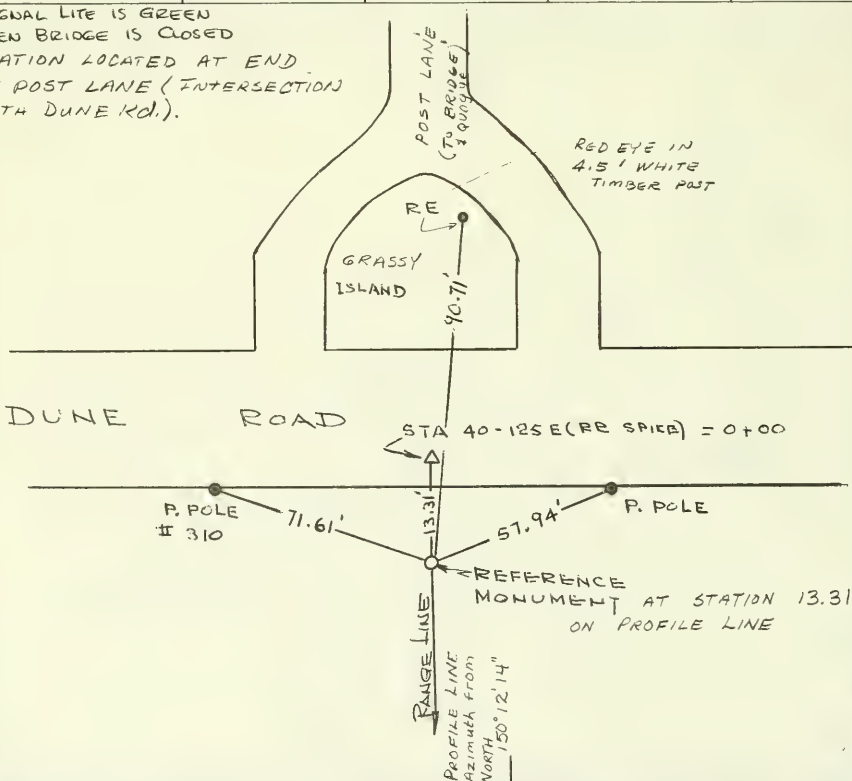 GNAL LITE IS GREEN
EN BRIDGE IS CLOSED
ATION LOCATED AT END
POST LANE (INTERSECTION
TH DUNE Rd.).
POST LANE
(TO BRIDGE)
& QUOGUE
RED EYE IN
4.5' WHITE
TIMBER POST
RE
GRASSY
ISLAND
90.71'
DUNE ROAD
STA 40-125E (RR SPIKE) = 0+00
P. POLE
# 310
71.61'
13.31'
57.94'
P. POLE
REFERENCE
MONUMENT AT STATION 13.31
ON PROFILE LINE
RANGE LINE
PROFILE LINE
Azimuth from
NORTH
150° 12' 14"